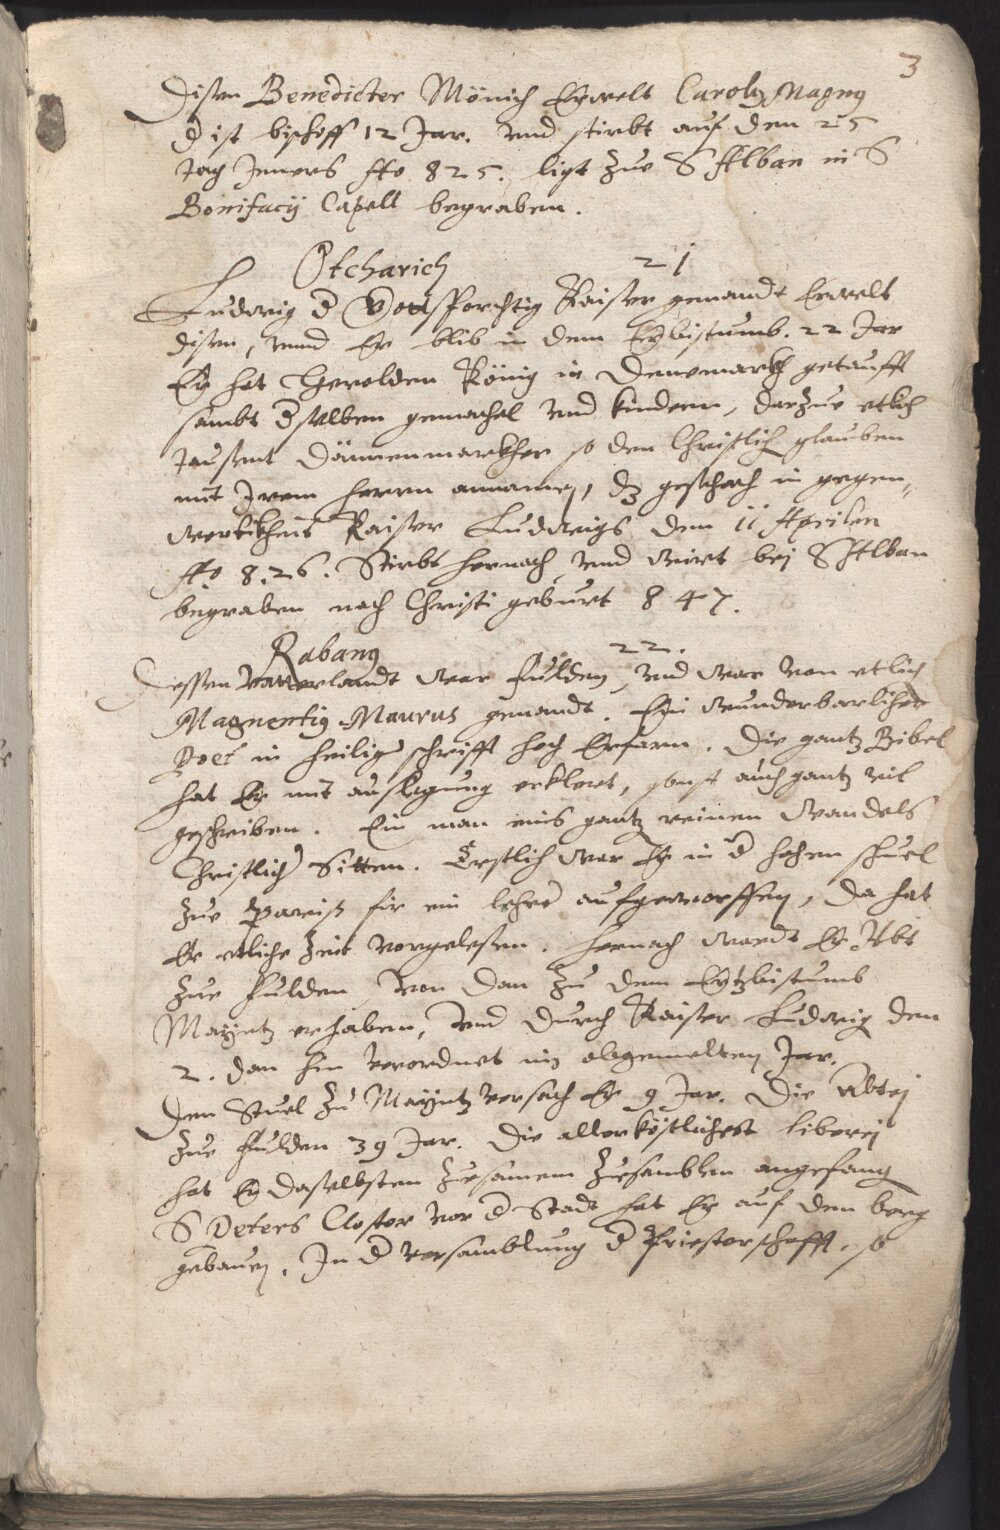 3
Disen Benedicter Mönich Erwelt Carolus Magnus
d ist bischoff 12 Jar. vnd stirbt auf den 25
tag Jeners Ao 825. ligt zue S Alban in S
Bonifacij Capell begraben.
Otcharich 21
Ludwig d Gottsforchtig Kaiser genandt Erwelt
disen, vnnd Er blib in dem Erzbistumb. 22 Jar
Er hat Herolden König in Denemarkh getaufft
sambt dselben gemachel vnd kindern, darzue etlich
tausent Dännenmarkher so den Christlich glauben
mit Jrem herrn annamen, dz geschach in gegen„
wertikheit Kaiser Ludwigs den 11 Aprilen
Ao 826. Stirbt hernach vnnd wirt bej S Alban
begraben nach Christi geburt 847.
Rabanus 22.
Dessen vatterlandt war Fulden, vnd war von etlich
Magnentius Maurus genandt. Ein wunderbarlicher
Poet in heilig schrifft hoch Erfarn. Die gantz Bibel
hat Er mit auslegung erklert, sonst auch gantz vil
geschriben. Ein man eins gantz reinen wandels
Christlich Sitten. Erstlich war Er in d hohen schuel
zue Pariß fir ein lehrer aufgeworffen, da hat
Er etliche zeit vorgelesen. hernach wardt Er Abt
zue Fulden, von dan zu dem Ertzbistumb
Mayntz erhaben, vnd durch Kaiser Ludwig den
2. dan hin verordnet im obgemelten Jar.
Den Stuel zu Mayntz versach Er 9 Jar. Die Abtej
zue Fulden 39 Jar. Die allerköstlichest liberej
hat Er daselbsten zusamem zusamblen angefang
S Peters Closter vor d Stadt hat Er auf den berg
gebauen. In d versamblung d Priesterschafft, so